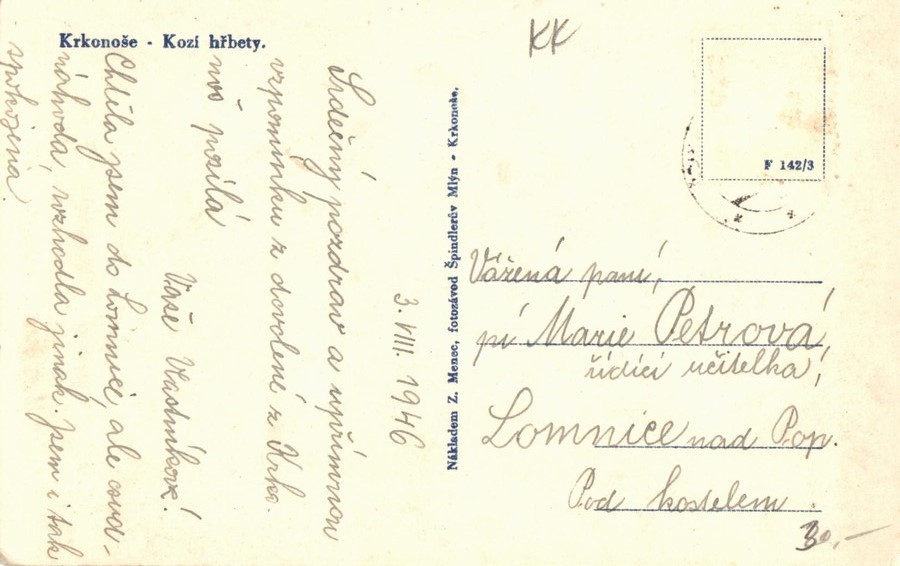 Krkonoše - Kozí hřbety.
KK
F 142/3
3. VIII. 1946
Srdečný pozdrav a upřímnou
vzpomínku z dovolené z Krko-
noš posílá
Vaše Vlastníkova!
Chtěla jsem do Lomnice, ale osud-
náhoda, rozhodla jinak. Jsem i tak
spokojena
Nákladem Z. Menec, fotozávod Špindlerův Mlýn - Krkonoše.
Vážená paní,
pí Marie Petrová,
řídící učitelka,
Lomnice nad Pop.
Pod kostelem.
30,-